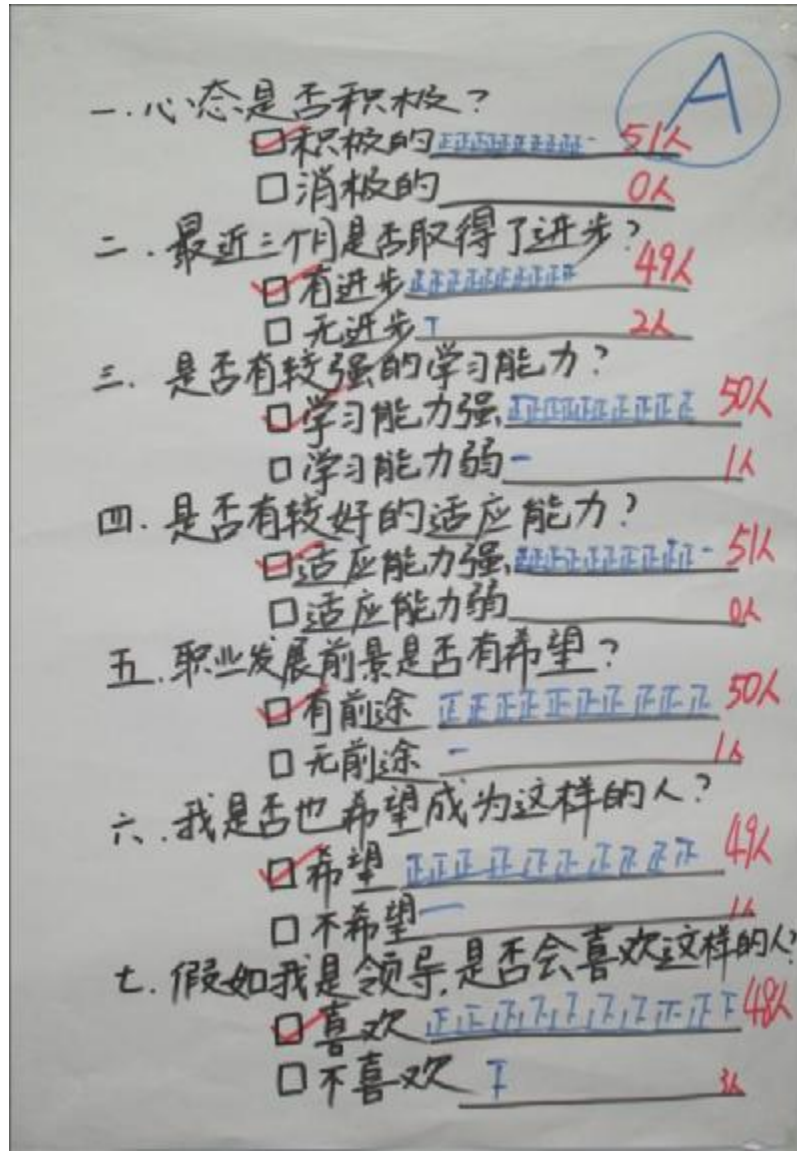 A
一.心态是否积极?
积极的 正正正正正正正正正正一 51人
消极的 0人
二.最近三个月是否取得了进步?
有进步 正正正正正正正正正正 49人
无进步 T 2人
三.是否有较强的学习能力?
学习能力强 正正正正正正正正正正 50人
学习能力弱 一 1人
四.是否有较好的适应能力?
适应能力强 正正正正正正正正正正一 51人
适应能力弱 0人
五.职业发展前景是否有希望?
有前途 正正正正正正正正正正 50人
无前途 一 1人
六.我是否也希望成为这样的人?
希望 正正正正正正正正正正 49人
不希望 一 1人
七.假如我是领导,是否会喜欢这样的人?
喜欢 正正正正正正正正正下 48人
不喜欢 下 3人